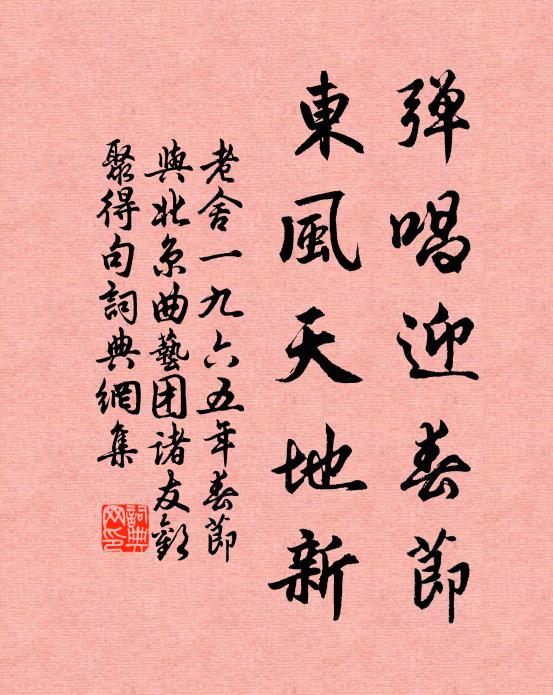 弹唱迎春節
東風天地新
老舍一九六五年春節
與北京曲藝团諸友歡
聚得句詞典網集
詞典网印